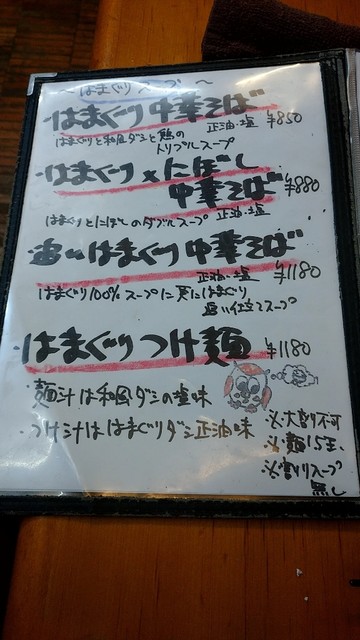 〜はまぐりスープ〜
はまぐり中華そば
正油・塩 ¥850
はまぐりと和風ダシと鶏の
トリプルスープ
はまぐり×にぼし
中華そば ¥880
はまぐりとにぼしのダブルスープ 正油・塩
追いはまぐり中華そば
正油・塩 ¥1180
はまぐり100%スープに更にはまぐり
追い仕立てスープ
はまぐりつけ麺 ¥1180
・麺汁は和風ダシの塩味
・つけ汁ははまぐりダシ正油味
※大割り不可
※麺1.5玉
※割りスープ
無し